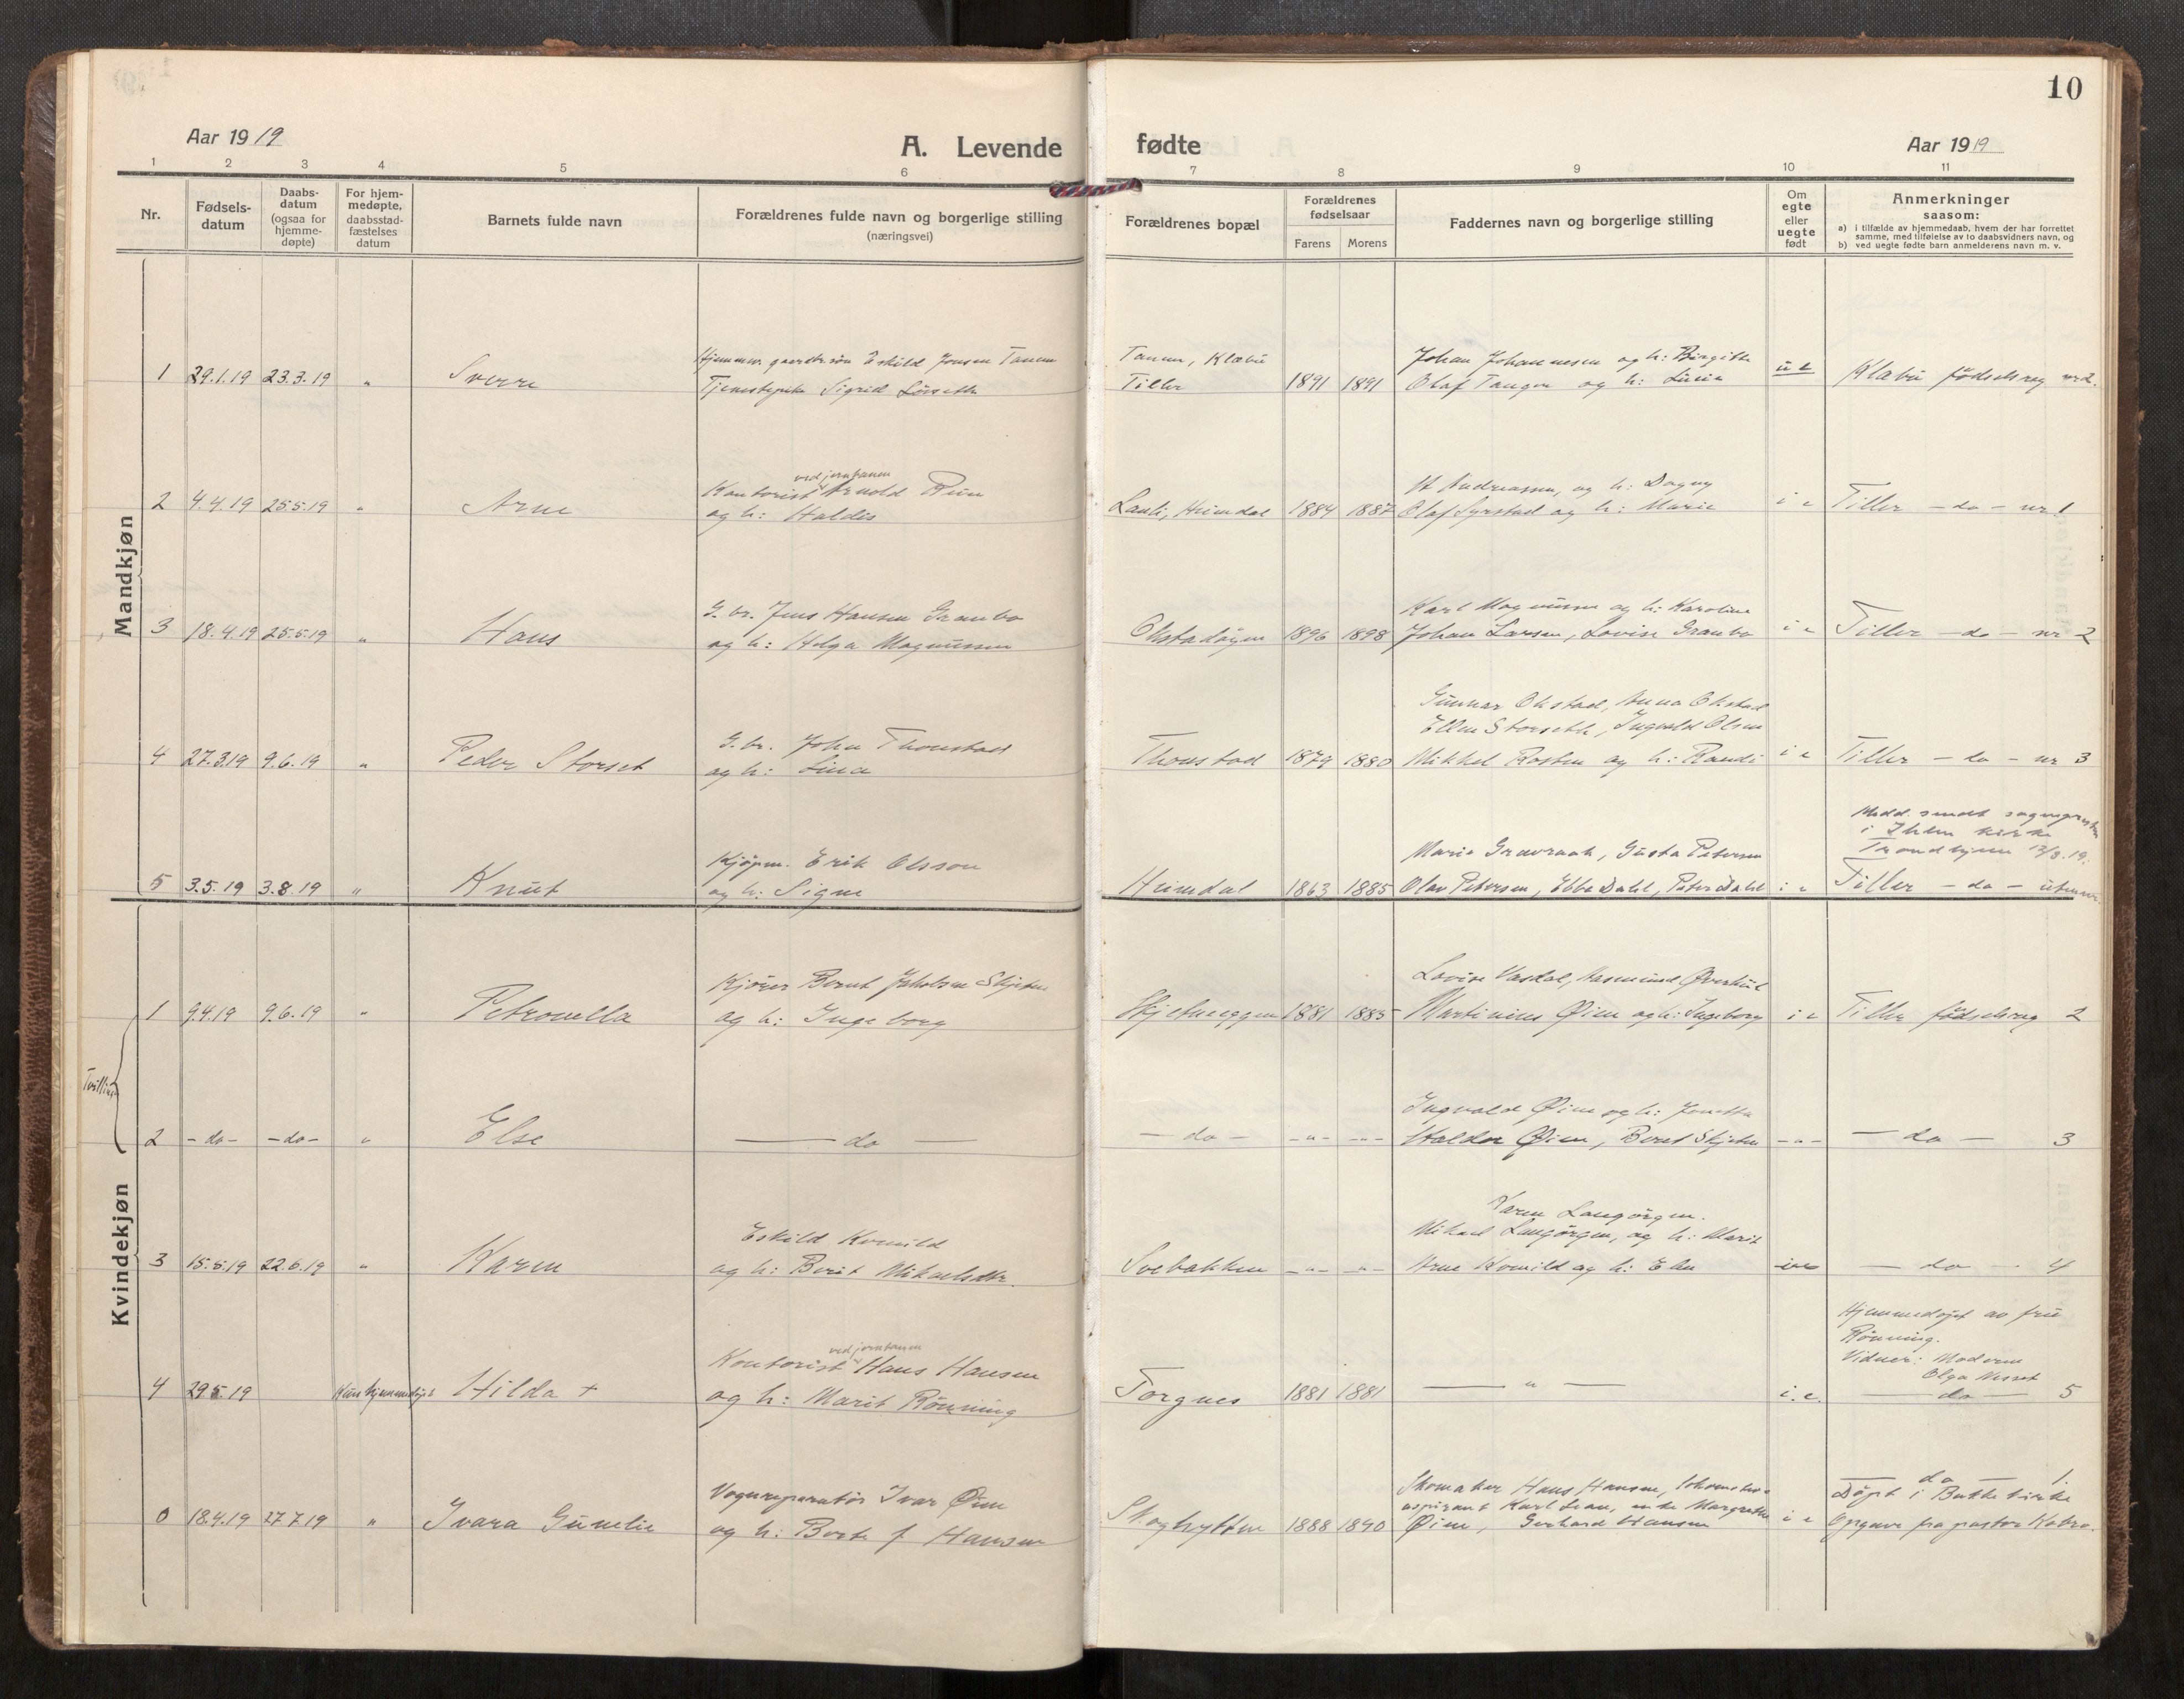 10
Aar 1919
A. Levende
fødte
Aar 1919
1 2 3 4 5 6 7 8 9 10 11
Nr.
Fødsels-
datum
Daabs-
datum
(ogsaa for
hjemme-
døpte)
For hjem-
medøpte,
daabsstad-
fæstelses
datum
Barnets fulde navn
Forældrenes fulde navn og borgerlige stilling
(næringsvei)
Forældrenes bopæl
Forældrenes
fødselsaar
Farens Morens
Faddernes navn og borgerlige stilling
Om
egte
eller
uegte
født
Anmerkninger
saasom:
a) i tilfælde av hjemmedaab, hvem der har forrettet
samme, med tilføielse av to daabsvidners navn, og
b) ved uegte fødte barn anmelderens navn m. v.
Mandkjøn
1 29.1.19 23.3.19 " Sverre
Eskild Jonsen Tanem
Sigrid
Tanem, Klæbu
Tiller
1891 1891
Johan Johannesen og h: Birgitte
Olaf Tangen og h:
u e
Klæbu fødselsreg nr 2.
2 4.4.19 25.5.19 " Arne
ved jernbanen
Kontorist Arnold
og h: Haldis
Heimdal
1884 1887
Andreassen, og h: Dagny
Olaf Syrstad og h: Marie
i e
Tiller - do - nr 1
3 18.4.19 25.5.19 " Hans
G. br. Jens Hansen Granbo
og h: Helga Magnussen
1896 1898
Karl Magnussen og h: Karoline
Johan Larsen, Lovise Granbo
i e
Tiller - do - nr 2
4 27.3.19 9.6.19 " Peder Storset
G. br. John Thonstad
og h:
Thonstad
1879 1880
Gunnar Okstad, Anna Okstad
Ellen Storseth, Ingvald Olsen
Mikkel Rosten og h: Randi
i e
Tiller - do - nr 3
5 3.5.19 3.8.19 " Knut
Kjøpm. Erik Olsson
og h: Signe
Heimdal
1863 1885
Marie Gravraak, Gusta Petersen
Olav Petersen, Ebba Dahl, Peter Dahl
i e
Medd. sendt sognepresten
i Ihlen kirke
Trondhjem 13/8.19.
Tiller - do - uten nr.
Kvindekjøn
Tvillinger
1 9.4.19 9.6.19 " Petronella
Kjører Bernt Jakobsen Skjetne
og h: Ingeborg
1881 1885
Lovise Vasdal,
Martinius Øien og h: Ingeborg
i e
Tiller fødselsreg 2
2 - do - - do - " Else
- do -
- do - - " - - " -
Ingvald Øien og h: Jonetta
Haldor Øien, Beret Skjetne
- " -
- do - 3
3 15.5.19 22.6.19 " Karen
Eskild Kvenild
og h: Berit Mikaelsdtr.
Svebakken
- " - - " -
Karen Langørgen.
Mikael Langørgen, og h: Marit
Arne Kvenild og h: Elen
- do - 4
4 29.5.19 Kun hjemmedøpt Hilda +
ved jernbanen
Kontorist Hans Hansen
og h: Marit Rønning
Torgnes
1881 1881
- " -
i. e.
Hjemmedøpt av fru
Rønning.
Vidner: Moderen
Olga
- do - 5
0 18.4.19 27.7.19 " Ivara Gunelie
Vognreparatør Ivar Øien
og h: Berte f Hansen
Skoghytten
1888 1890
Skomaker Hans Hansen,
aspirant Karl enke Margrethe
Øien, Gerhard Hansen
i e
- do - 1.
Døpt i Bakke kirke
Opgave fra pastor